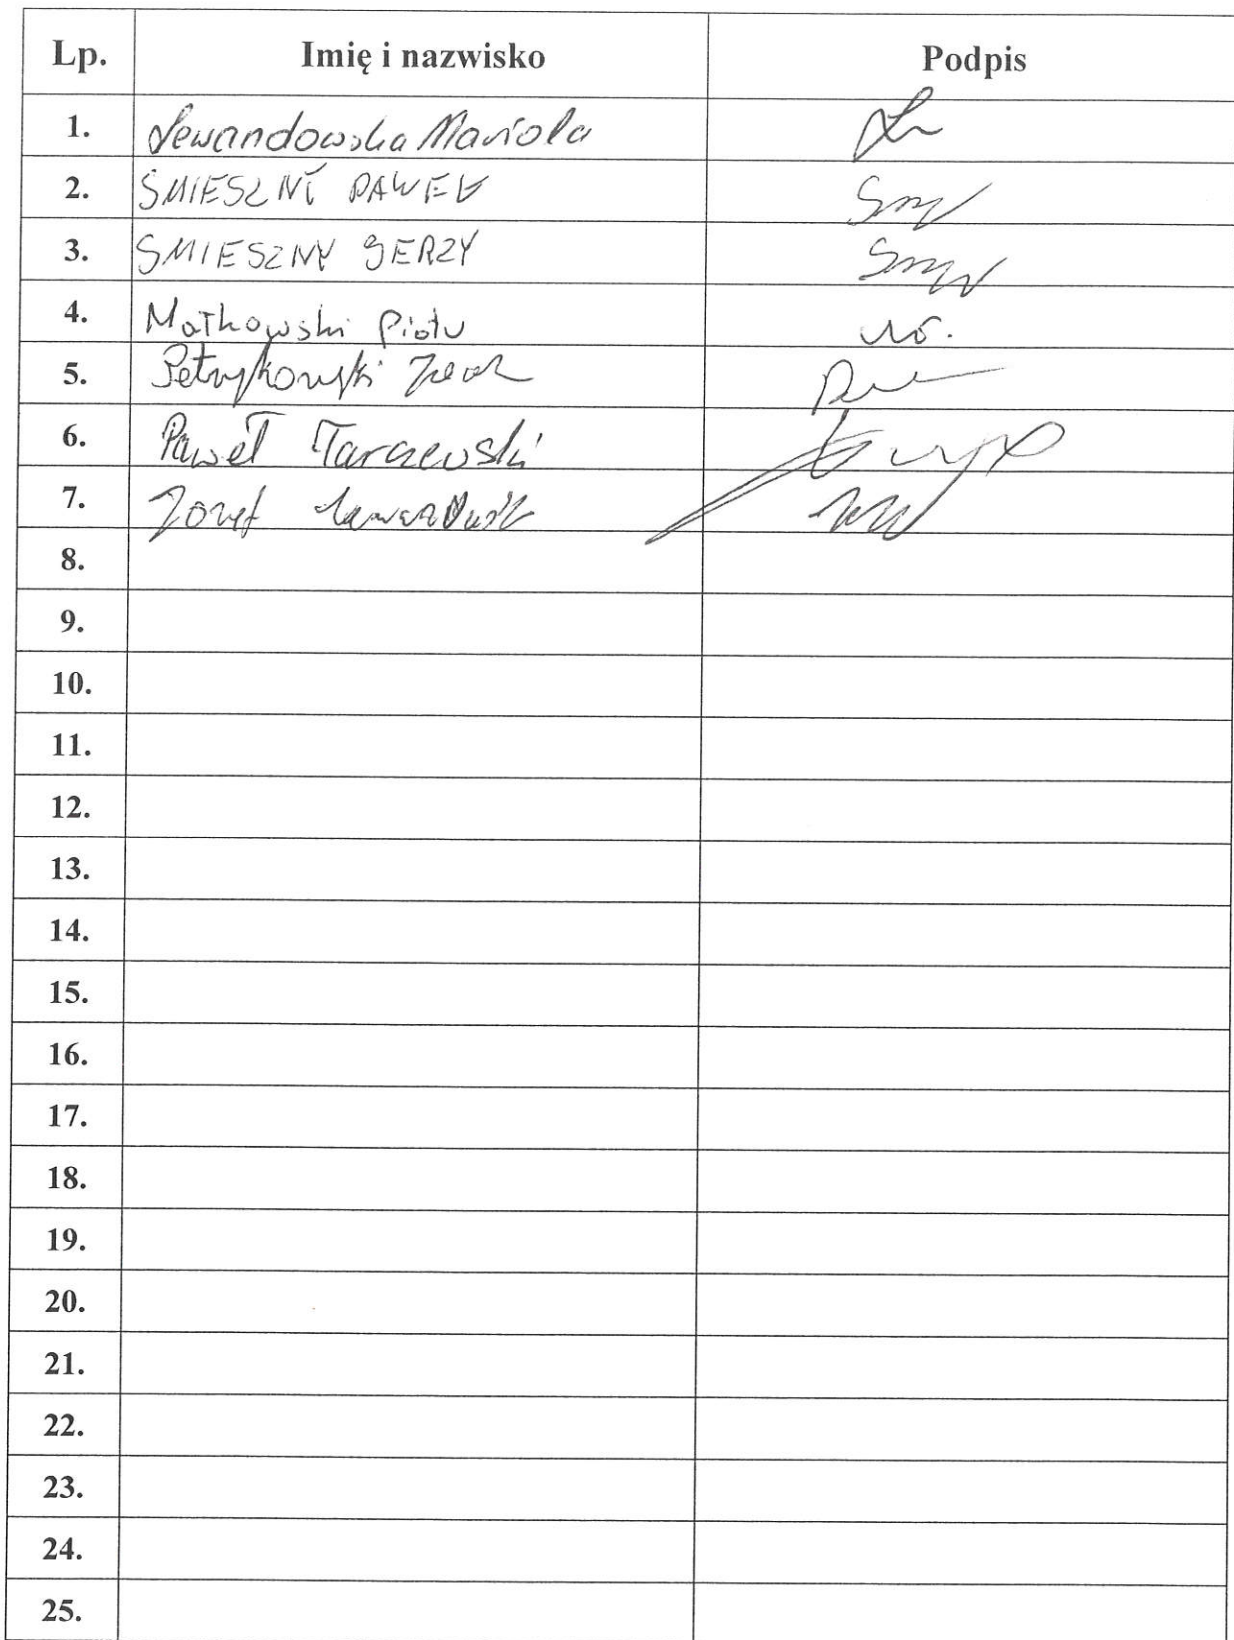 Lp. Imię i nazwisko Podpis
1. Lewandowska Mariola
2. ŚMIESZNY PAWEŁ
3. ŚMIESZNY JERZY
4. Matkowski Piotr
5. Petrykowski
6. Paweł Tarczewski
7. Józef
8.
9.
10.
11.
12.
13.
14.
15.
16.
17.
18.
19.
20.
21.
22.
23.
24.
25.